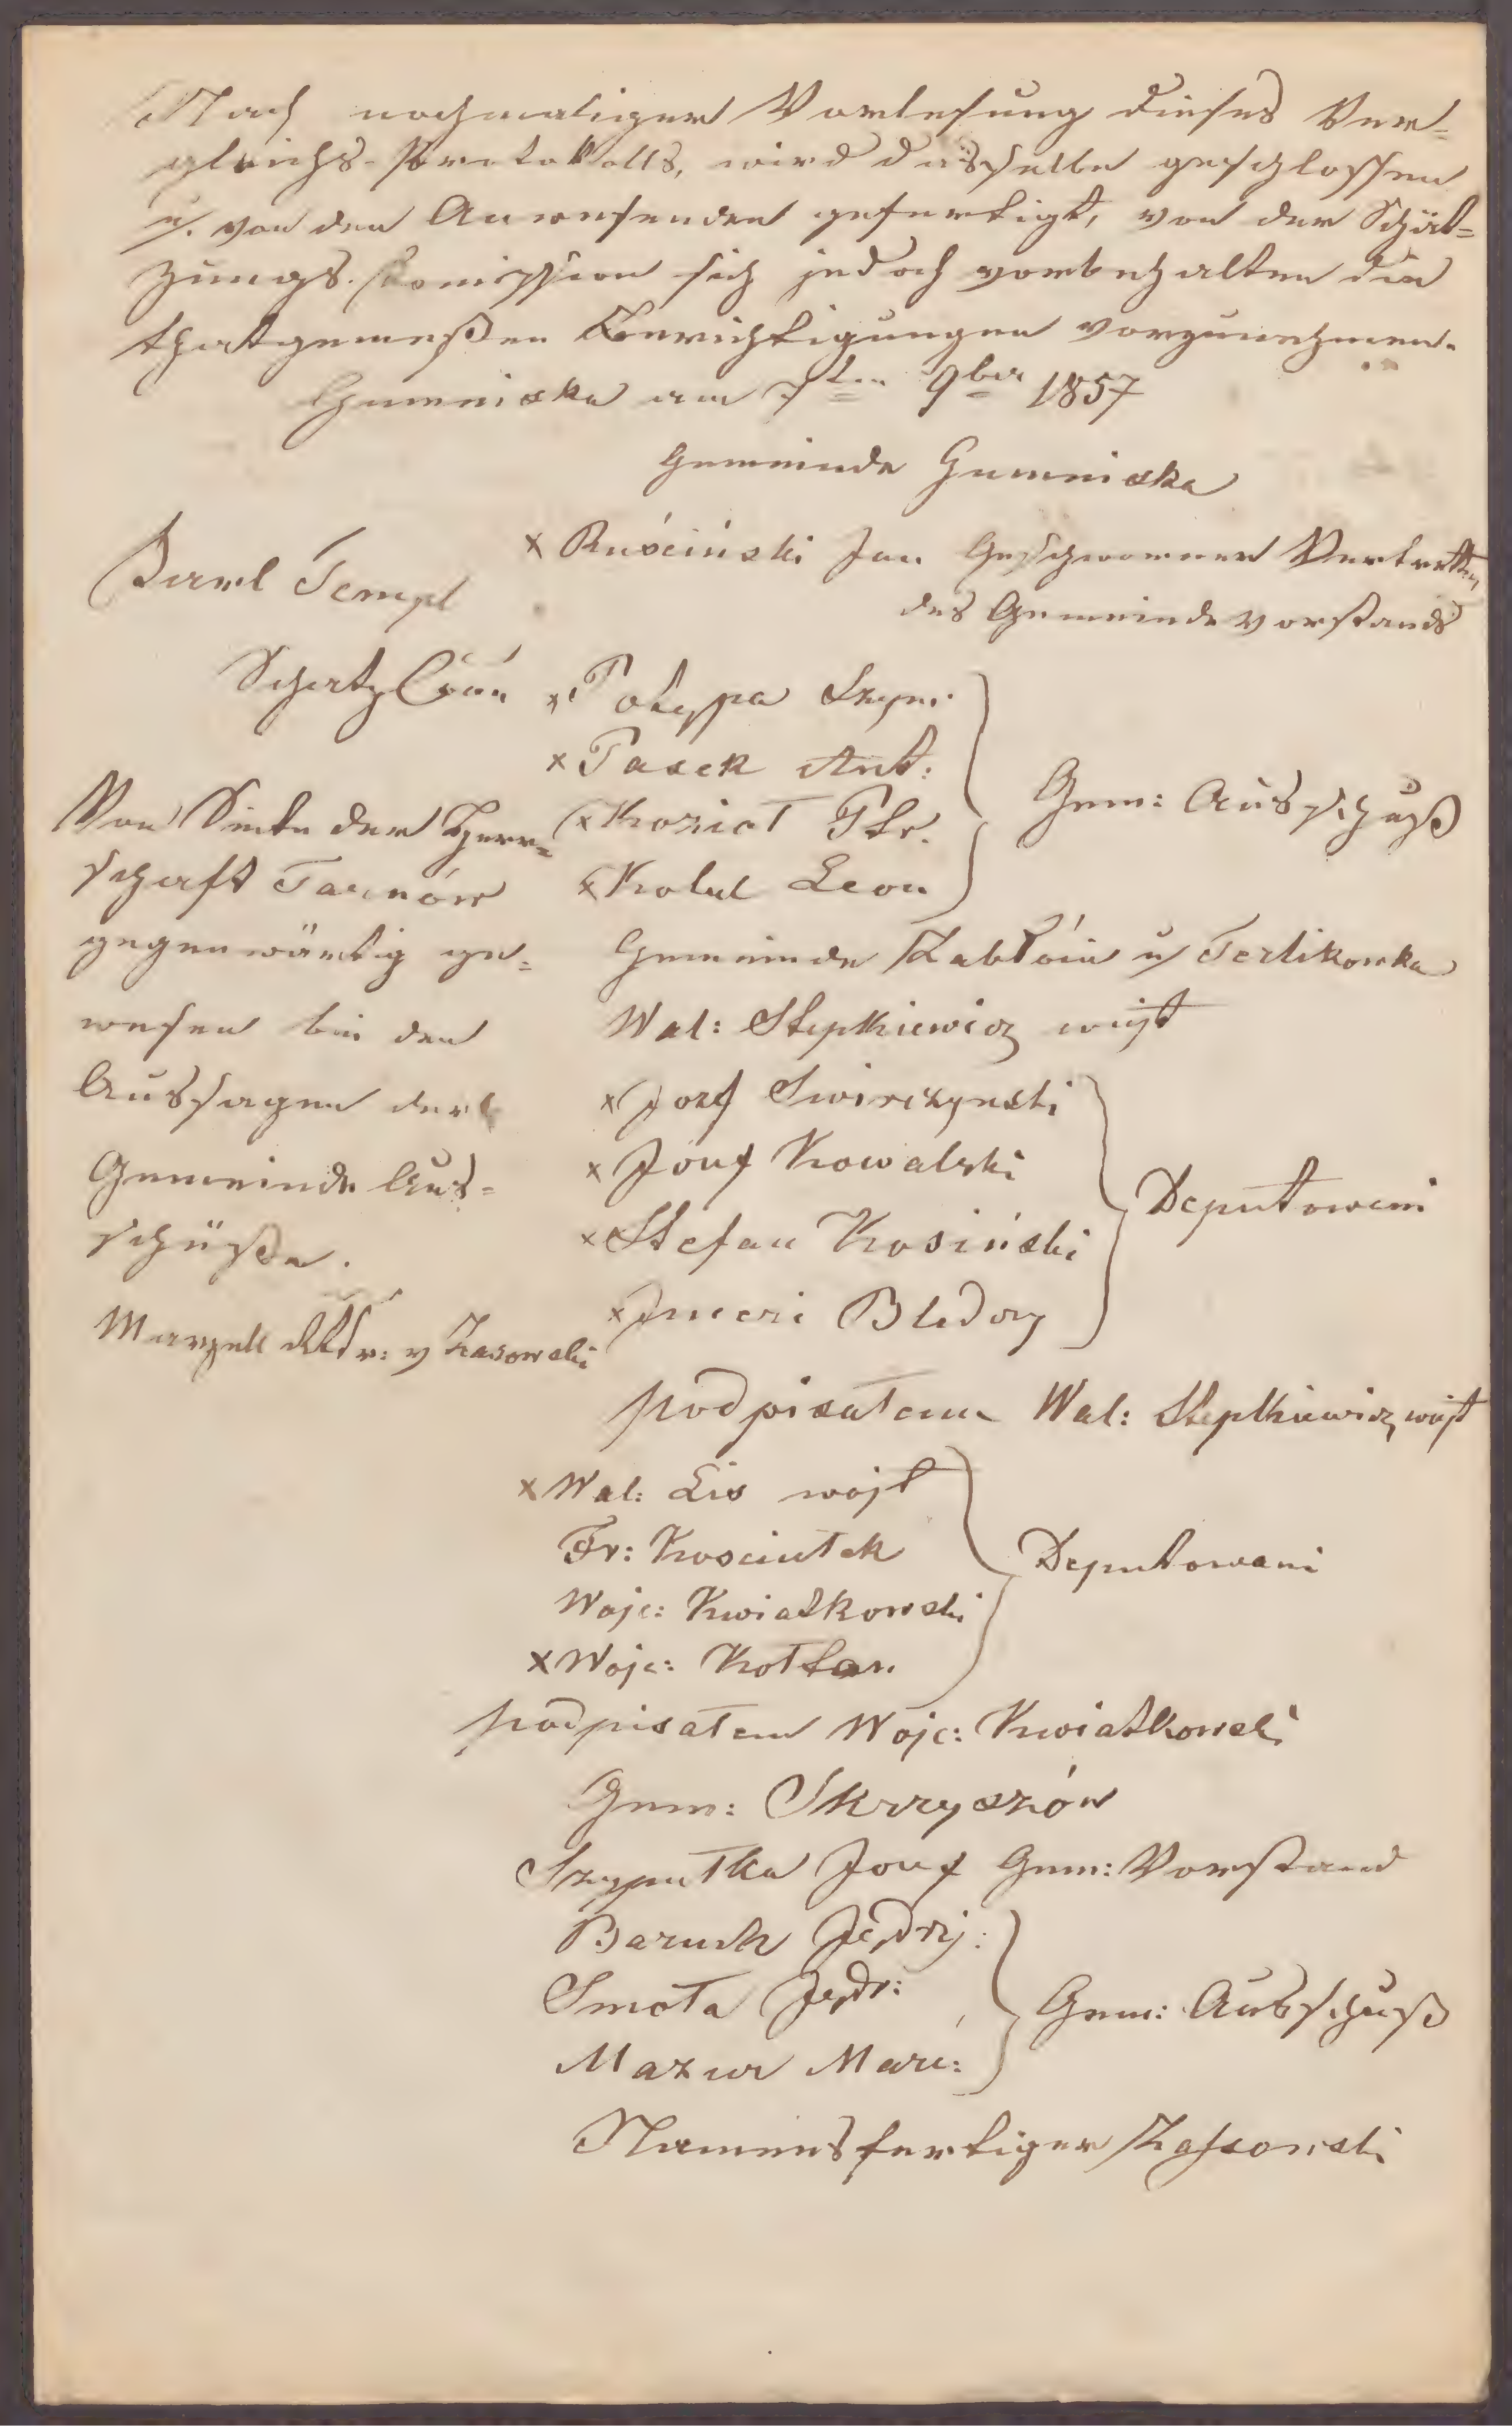 Nach nochmaliger Vorlesung dieses Ver=
gleichs-Protokolls, wird dasselbe geschlossen
u. von den Anwesenden gefertigt, von der Schät=
zungs. Komission sich jedoch vorbehalten die
thatgemeßen Berichtigungen vorzunehmen.
Gumniska am 7ten 9ber 1857
Gemeinde Gumniska
x Ruściński Jan Geschworner Vertretter
des Gemeindevorstands
Karl Templ
Schatz Com̄
x Potyppa Szym:
x Pasek Ant:
x Kozioł Ptr.
x Kolul Leon
Gem: Ausschuß
Von Seite der Herr=
schaft Tarnów
gegenwärtig ge=
wesen bei den
Aussagen der
Gemeinde Aus=
schüße.
Marzell v Zasowski
Gemeinde Zabłoin u Terlikowka
Wal: Stepkiewicz wujt
x Jozef Swirczynski
x Jozef Kowalski
x Stefan Kosiński
x Bledoz
Deputowani
podpisałem Wal: Stepkiewicz wujt
x Wal: Lis wojt
Fr: Kosciułek
Wojc: Kwiatkowski
x Wojc: Kotlar.
Deputowani
podpisałem Wojc: Kwiatkowski
Gem: Skrzyszów
Szypułka Jozef Gem: Vorstand
Baruch Jędrzj:
Smoła Jędr:
Mazur Marc:
Gem: Ausschuß
Namensfertiger Zassowski